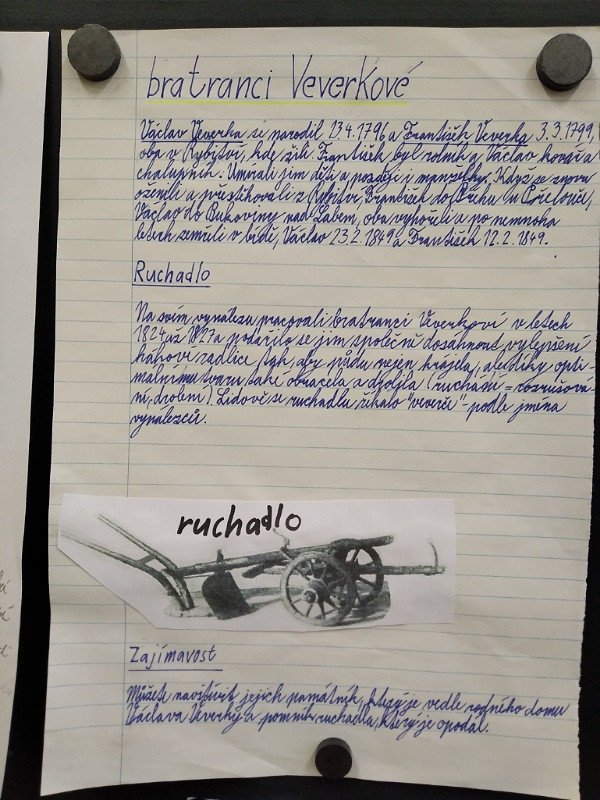 bratranci Veverkové
Václav Veverka se narodil 13.4.1796 a František Veverka 3.3.1799,
oba v Rybitví, kde žili. František byl rolník a Václav kovář a
chalupník. Umírali jim děti a později i manželky. Když se znovu
oženili a přestěhovali z Rybitví, František do Břehů (u Přelouče),
Václav do Bukoviny nad Labem, oba vyhořeli a po nemnoha
letech zemřeli v bídě, Václav 23.2.1849 a František 12.2.1849.
Ruchadlo
Na svém vynálezu pracovali bratranci Veverkovi v letech
1824 až 1827 a podařilo se jim společně dosáhnout vylepšení
hákové radlice tak, aby půdu nejen krájela, ale díky opti-
málnímu tvaru také obracela a drobila (ruchání = rozrušová-
ní, drobení). Lidově se ruchadlu říkalo "veverče" - podle jména
vynálezců.
ruchadlo
Zajímavost
Můžete navštívit jejich památník, který je vedle rodného domu
Václava Veverky a pomník ruchadla, který je opodál.